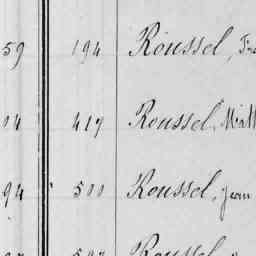 59 194 Roussel,
04 417 Roussel,
94 500 Roussel, Jean
Roussel